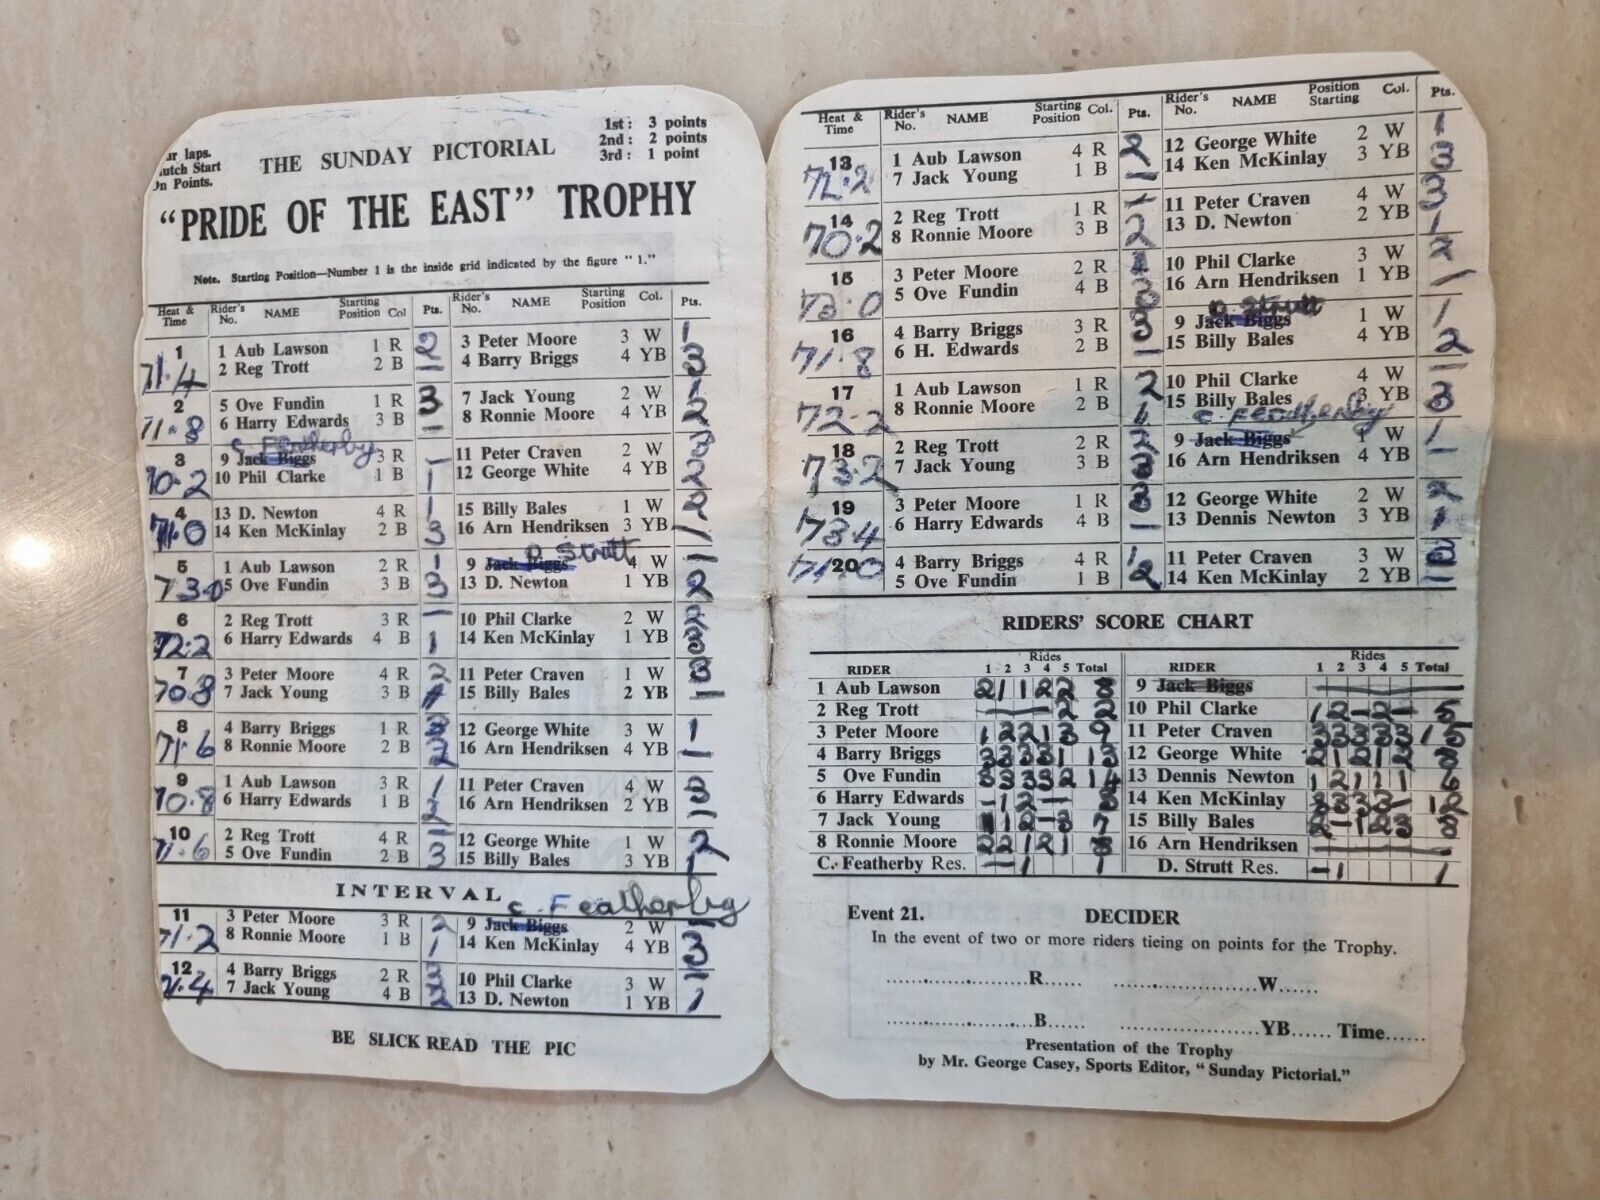 ur laps.
utch Start
On Points.
THE SUNDAY PICTORIAL
1st: 3 points
2nd: 2 points
3rd: 1 point
"PRIDE OF THE EAST" TROPHY
Note. Starting Position—Number 1 is the inside grid indicated by the figure "1."
Heat & Time Rider's No. NAME Starting Position Col Pts. Rider's No. NAME Starting Position Col. Pts.
1 1 Aub Lawson 1 R 2 3 Peter Moore 3 W 1
71.4 2 Reg Trott 2 B — 4 Barry Briggs 4 YB 3
2 5 Ove Fundin 1 R 3 7 Jack Young 2 W
71.8 6 Harry Edwards 3 B — 8 Ronnie Moore 4 YB 2
C Featherby
3 9 Jack Biggs 3 R — 11 Peter Craven 2 W 3
70.2 10 Phil Clarke 1 B 1 12 George White 4 YB 2
4 13 D. Newton 4 R 1 15 Billy Bales 1 W 2
71.0 14 Ken McKinlay 2 B 3 16 Arn Hendriksen 3 YB —
D Strutt
5 1 Aub Lawson 2 R 1 9 Jack Biggs 4 W —
73.0 5 Ove Fundin 3 B 3 13 D. Newton 1 YB 2
6 2 Reg Trott 3 R — 10 Phil Clarke 2 W 2
72.2 6 Harry Edwards 4 B 1 14 Ken McKinlay 1 YB 3
7 3 Peter Moore 4 R 2 11 Peter Craven 1 W 3
70.8 7 Jack Young 3 B 1 15 Billy Bales 2 YB —
8 4 Barry Briggs 1 R 3 12 George White 3 W 1
71.6 8 Ronnie Moore 2 B 2 16 Arn Hendriksen 4 YB —
9 1 Aub Lawson 3 R 1 11 Peter Craven 4 W 3
70.8 6 Harry Edwards 1 B 2 16 Arn Hendriksen 2 YB —
10 2 Reg Trott 4 R — 12 George White 1 W 2
71.6 5 Ove Fundin 2 B 3 15 Billy Bales 3 YB 1
INTERVAL
C. Featherby
11 3 Peter Moore 3 R 2 9 Jack Biggs 2 W —
71.2 8 Ronnie Moore 1 B 1 14 Ken McKinlay 4 YB 3
12 4 Barry Briggs 2 R 3 10 Phil Clarke 3 W —
7 Jack Young 4 B 2 13 D. Newton 1 YB 1
BE SLICK READ THE PIC
Heat & Time Rider's No. NAME Starting Position Col. Pts. Rider's No. NAME Position Starting Col. Pts.
13 1 Aub Lawson 4 R 2 12 George White 2 W 1
72.2 7 Jack Young 1 B — 14 Ken McKinlay 3 YB 3
14 2 Reg Trott 1 R — 11 Peter Craven 4 W 3
70.2 8 Ronnie Moore 3 B 2 13 D. Newton 2 YB 1
15 3 Peter Moore 2 R 10 Phil Clarke 3 W 2
73.0 5 Ove Fundin 4 B 3 16 Arn Hendriksen 1 YB —
D. Strutt
16 4 Barry Briggs 3 R 3 9 Jack Biggs 1 W 1
71.8 6 H. Edwards 2 B — 15 Billy Bales 4 YB 2
17 1 Aub Lawson 1 R 2 10 Phil Clarke 4 W —
72.2 8 Ronnie Moore 2 B 1 15 Billy Bales 3 YB 3
C. Featherby
18 2 Reg Trott 2 R 2 9 Jack Biggs 1 W 1
73.2 7 Jack Young 3 B 3 16 Arn Hendriksen 4 YB —
19 3 Peter Moore 1 R 3 12 George White 2 W 2
73.4 6 Harry Edwards 4 B — 13 Dennis Newton 3 YB 1
20 4 Barry Briggs 4 R 1 11 Peter Craven 3 W 3
71.0 5 Ove Fundin 1 B 2 14 Ken McKinlay 2 YB —
RIDERS' SCORE CHART
RIDER Rides 1 2 3 4 5 Total RIDER Rides 1 2 3 4 5 Total
1 Aub Lawson 2 1 1 2 2 8 9 Jack Biggs
2 Reg Trott — 2 2 10 Phil Clarke 1 2 — 2 — 5
3 Peter Moore 1 2 2 1 3 9 11 Peter Craven 3 3 3 3 3 15
4 Barry Briggs 3 3 3 3 1 13 12 George White 2 1 2 1 2 8
5 Ove Fundin 3 3 3 3 2 14 13 Dennis Newton 1 2 1 1 1 6
6 Harry Edwards — 1 2 — 3 14 Ken McKinlay 3 3 3 3 — 12
7 Jack Young 1 1 2 — 3 7 15 Billy Bales 2 — 1 2 3 8
8 Ronnie Moore 2 2 1 2 1 8 16 Arn Hendriksen —
C. Featherby Res. — — 1 1 D. Strutt Res. — 1 1
Event 21. DECIDER
In the event of two or more riders tieing on points for the Trophy.
..................R...... ..................W......
..................B...... ..................YB...... Time......
Presentation of the Trophy
by Mr. George Casey, Sports Editor, "Sunday Pictorial."